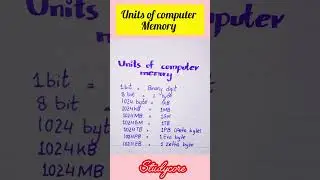 Units of computer
Memory
Units of computer
memory
1 bit = Binary digit
8 bit = 1 byte
1024 byte = 1KB
1024 KB = 1MB
1024 MB = 1GB
1024 GM = 1TB
1024 TB = 1PB (Peta byte)
1024 PB = 1 Exa byte
1024 EB = 1 Zetta byte
Studycore
1 bit =
8 bit
1024 byt
1024 KB
1024 MB